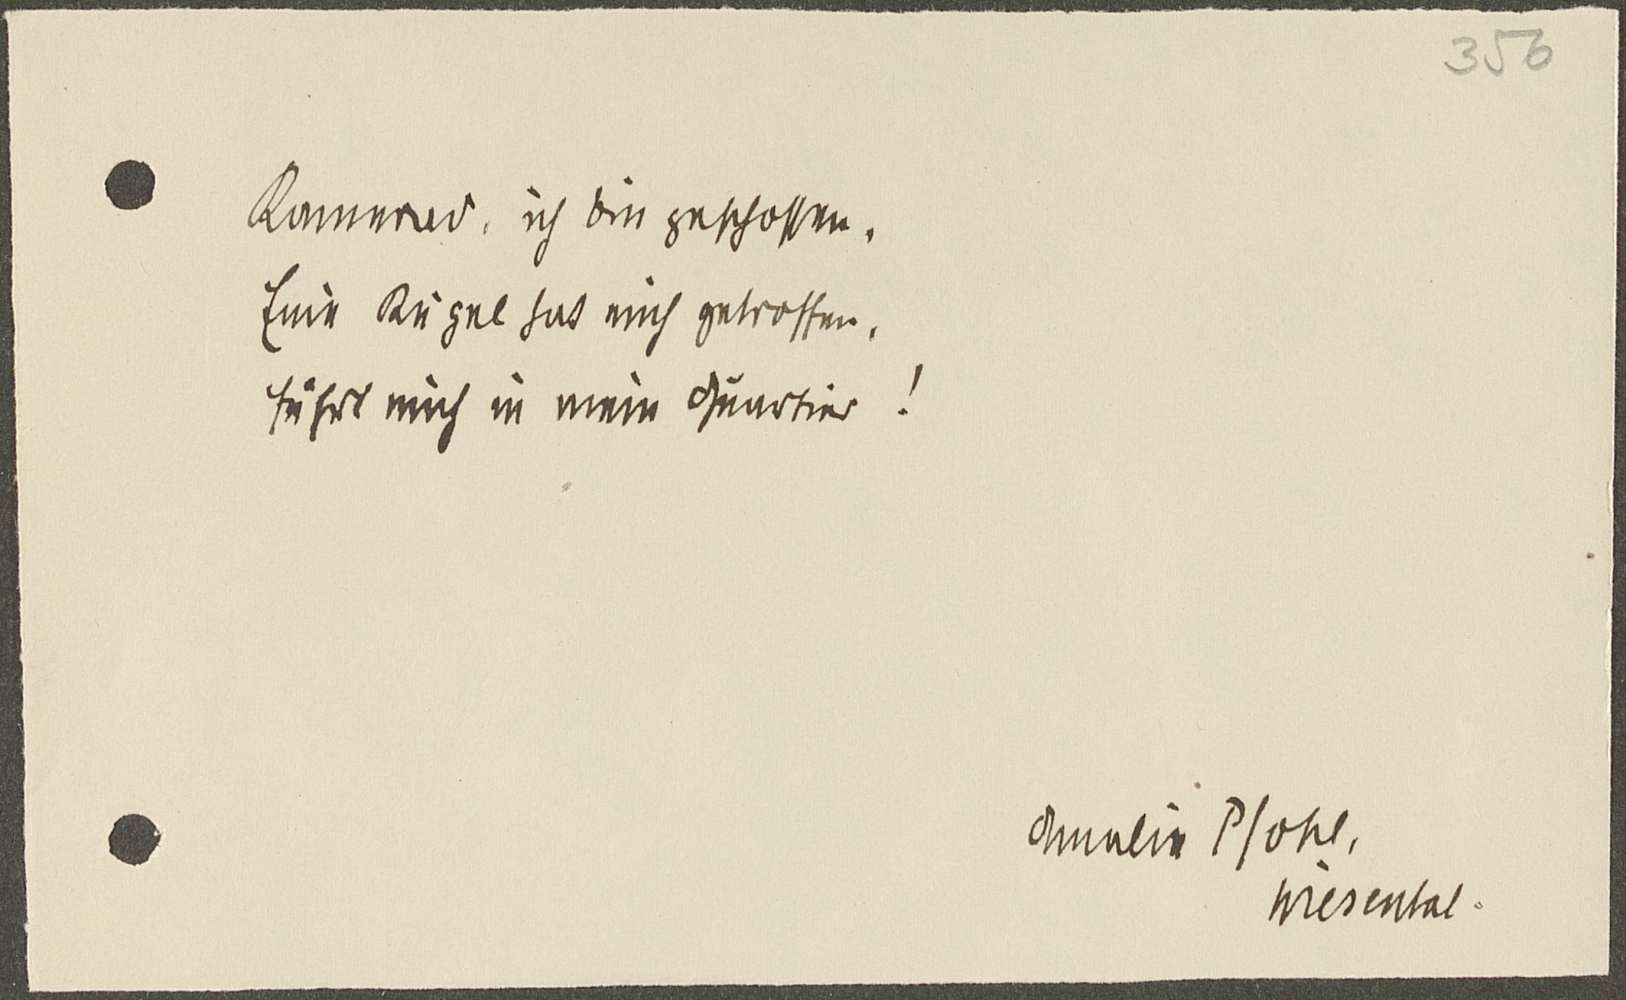 356
Kamerad, ich bin geschossen,
Eine Kugel hat mich getroffen,
führt mich in mein Quartier!
Amalie Pfohl,
Wiesental.